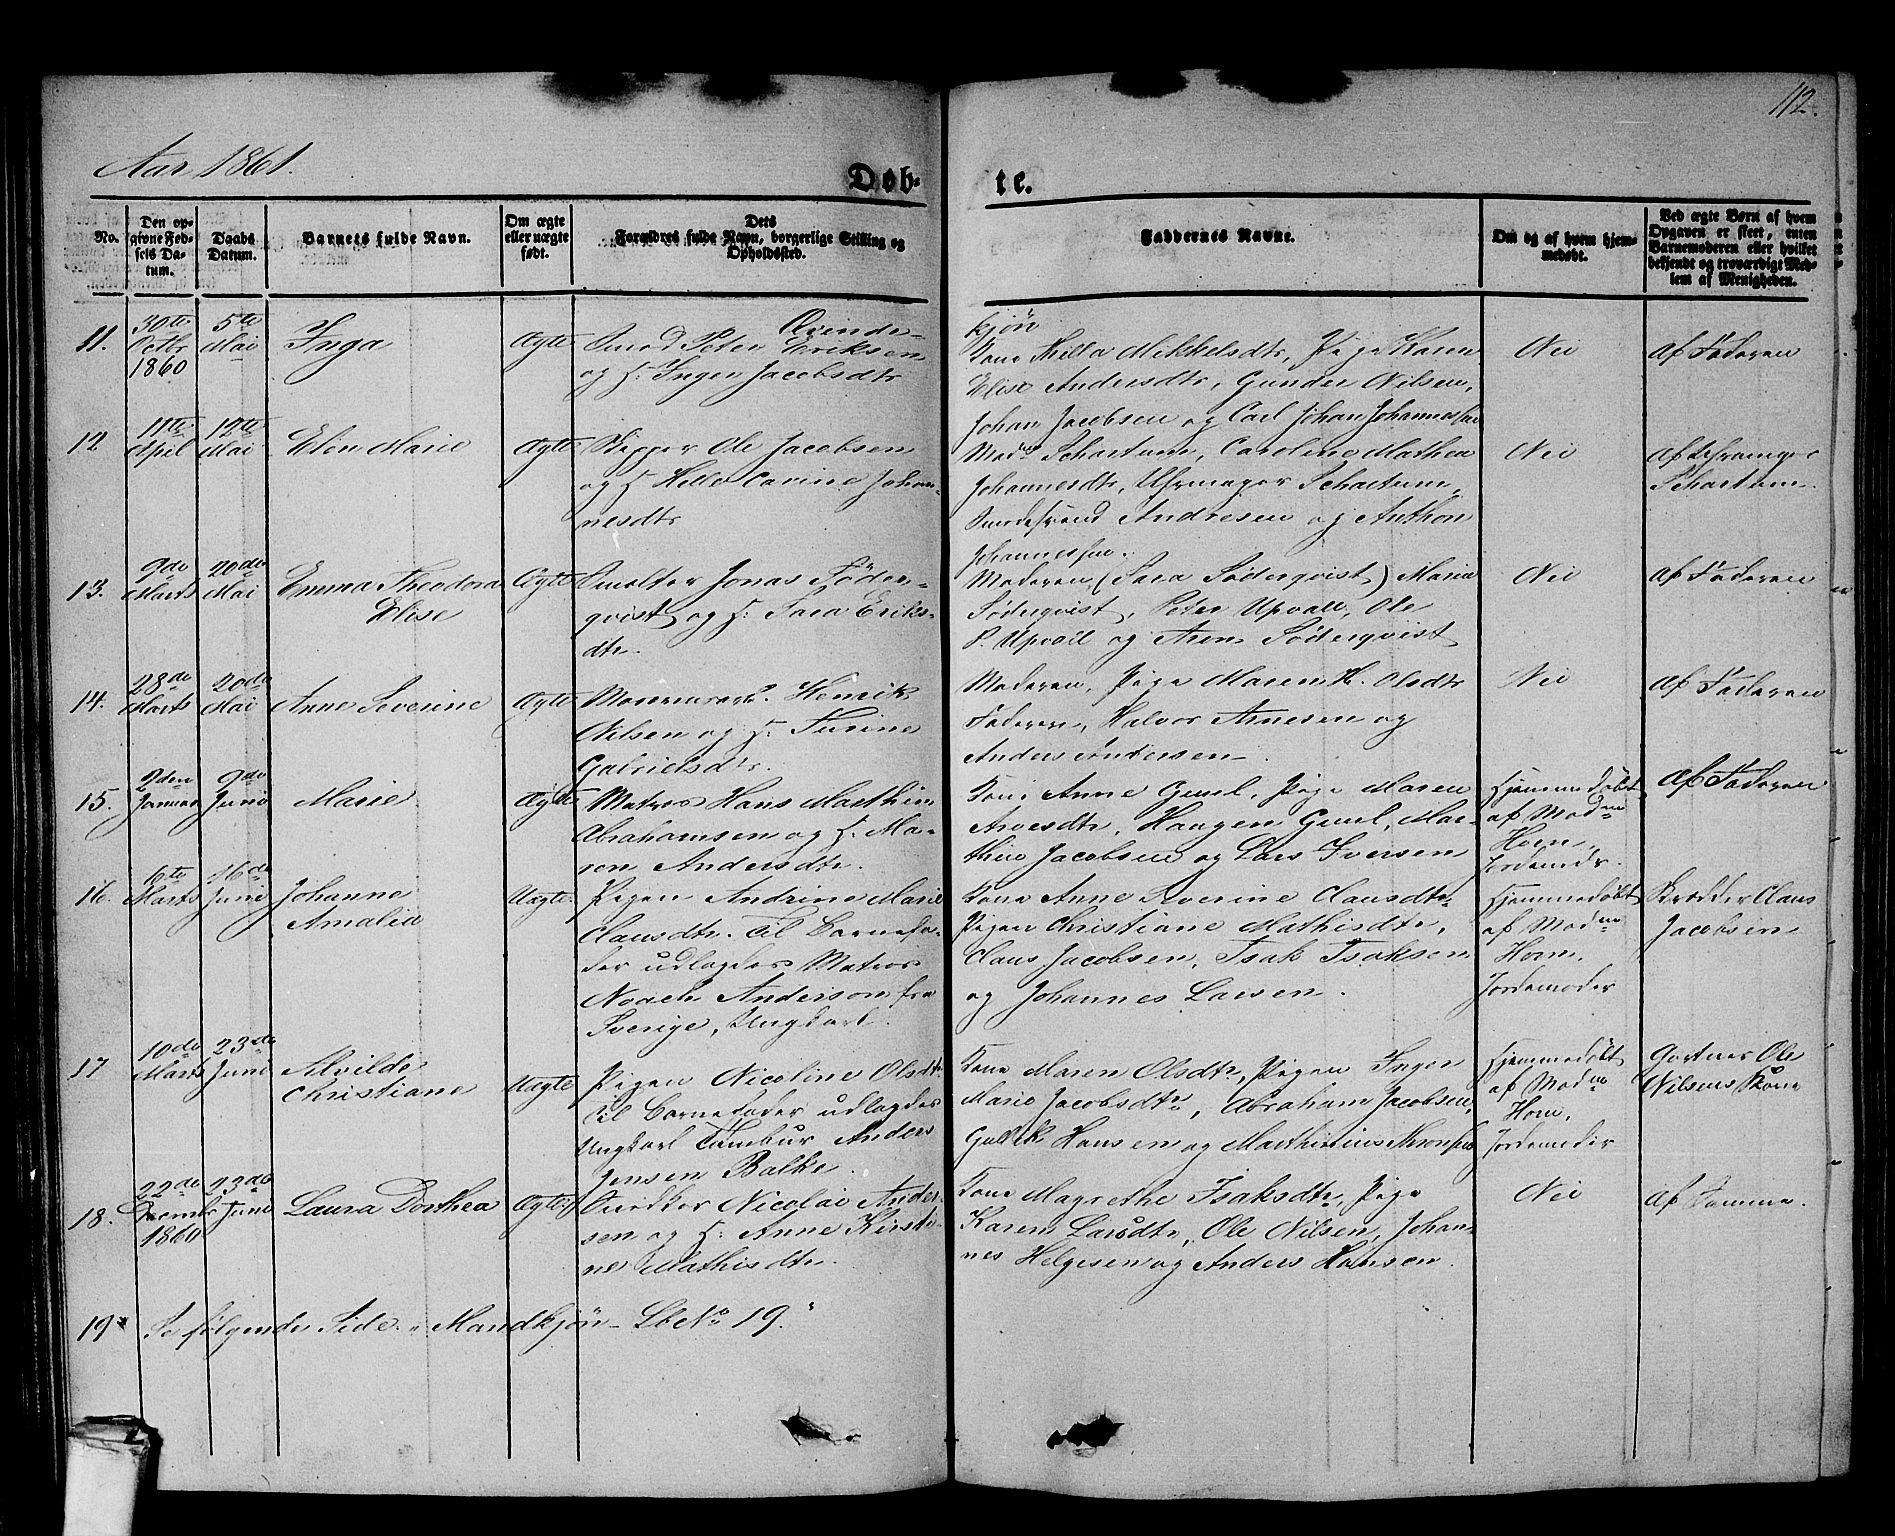 112.
Aar 1861.
Døb-
te.
No.
Den op-
givne Fød-
sels Da-
tum.
Daabs
Datum.
Barnets fulde Navn.
Om ægte
eller uægte
født.
Dets
Forældres fulde Navn, borgerlige Stilling og
Opholdssted.
Faddernes Navne.
Om og af hvem hjem-
medøbt.
Ved ægte Børn af hvem
Opgaven er skeet, enten
Barnemoderen eller hvilket
bekjendt og troværdigt Med-
lem af Menigheden.
Qvinde-
kjøn
11.
30te
Octbr
1860
5te
Mai
Inga
Ægte
Smed Peter Eriksen
og H. Inger Jacobsdtr
Kone Milla Mikkelsdtr, Pige Karen
Elise Andersdtr, Gunder Nilsen,
Johan Jacobsen og Carl Johan Johannessen
Nei
Af Faderen
12
11te
April
12te
Mai
Elen Marie
Ægte
Skipper Ole Jacobsen
og H. Helle Carine Johan-
nesdtr
Mad. Schartum, Caroline Mathea
Johannesdtr, Uhrmager Schartum,
Andresen og Anthon
Johannessen.
Nei
Af Uhrmager
Schartum.
13.
9de
Marts
20de
Mai
Emma Theodora
Elise
Ægte
Smelter Jonas Söder-
qvist og H. Sara Eriks-
dtr.
Moderen (Sara Söderqvist) Maria
Söderqvist, Peter Upvall, Ole
P. Upvall og Aren Söderqvist
Nei
Af Faderen
14.
28de
Marts
20de
Mai
Anne Severine
Ægte
Henrik
Nilsen og H. Turine
Gabrielsdtr.
Moderen, Pige Maren H. Olsdtr
Faderen, Halvor Arnesen og
Anders Andersen
Nei
Af Faderen
15.
2den
Januar
9de
Juni
Marie
Ægte
Matros Hans Marthin
Abrahamsen og H. Ma-
ren Andersdtr.
Kone Anne Gusel, Pige Maren
Arvesdtr, Haagen Gusel, Mar-
thin Jacobsen og Lars Iversen
Hjemmedøbt
af Madme
Horn,
Jordemdr.
Af Faderen
16.
6te
Marts
16de
Juni
Johanne
Amalia
Uægte
Pigen Andrine Marie
Clausdtr. Til Barnefa-
der udlagdes Matros
Noach Anderson fra
Sverige, Ungkarl.
Kone Anne Severine Clausdtr
Pigen Christiane Mathisdtr,
Claus Jacobsen, Isak Isaksen
og Johannes Larsen.
Hjemmedøbt
af Madme
Horn,
Jordemoder
Skrædder Claus
Jacobsen
17
10de
Marts
23de
Juni
Alvilde
Christiane
Uægte
Pigen Nicoline Olsdtr
Til Barnefader udlagdes
Ungkarl Tambur Anders
Jensen Balke.
Kone Maren Olsdtr, Pigen Inger
Marie Jacobsdtr, Abraham Jacobsen,
Gullik Hansen og Marthinius Aronsen
Hjemmedøbt
af Madme
Horn,
Jordemoder
Gartner Ole
Nilsens Kone
18.
22de
Decembr
1860
23de
Juni
Laura Dorthea
Ægte
Snedker Nicolai Ander-
sen og H. Anne Kirsti-
ne Mathisdtr.
Kone Magrethe Isaksdtr, Pige
Karen Larsdtr, Ole Nilsen, Johan-
nes Helgesen og Anders Hansen.
Nei
Af Samme.
19
Se følgende Side. Mandkjøn Lbe No 19.